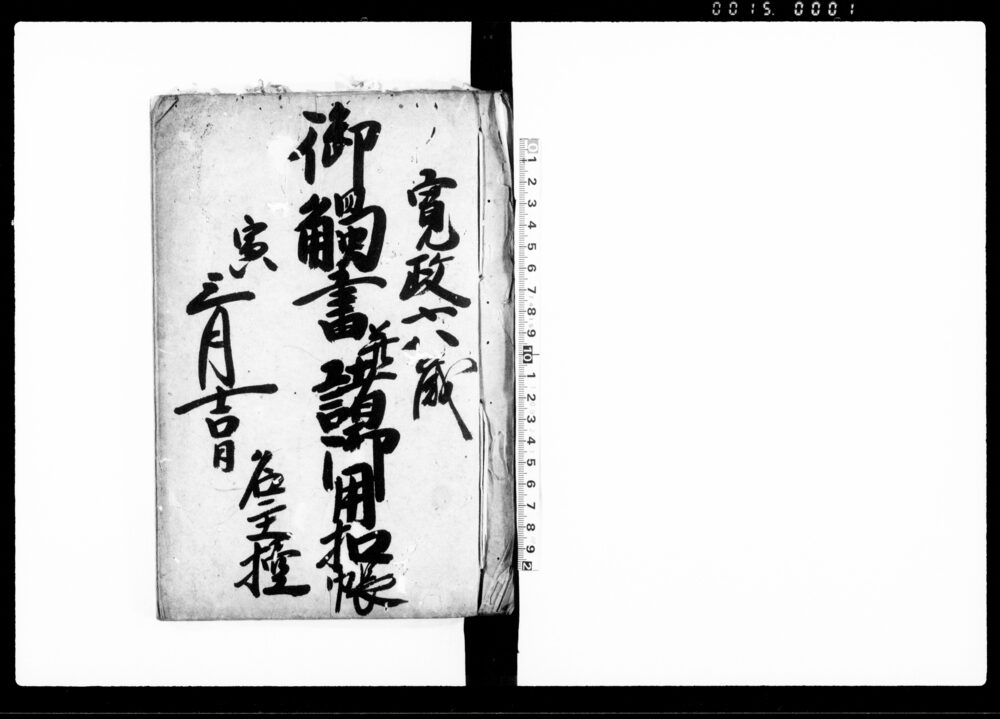 0015. 0001
寛政六歳
御觸書并諸御用扣帳
寅
三月吉日
名主控
0 1 2 3 4 5 6 7 8 9 10 1 2 3 4 5 6 7 8 9 2